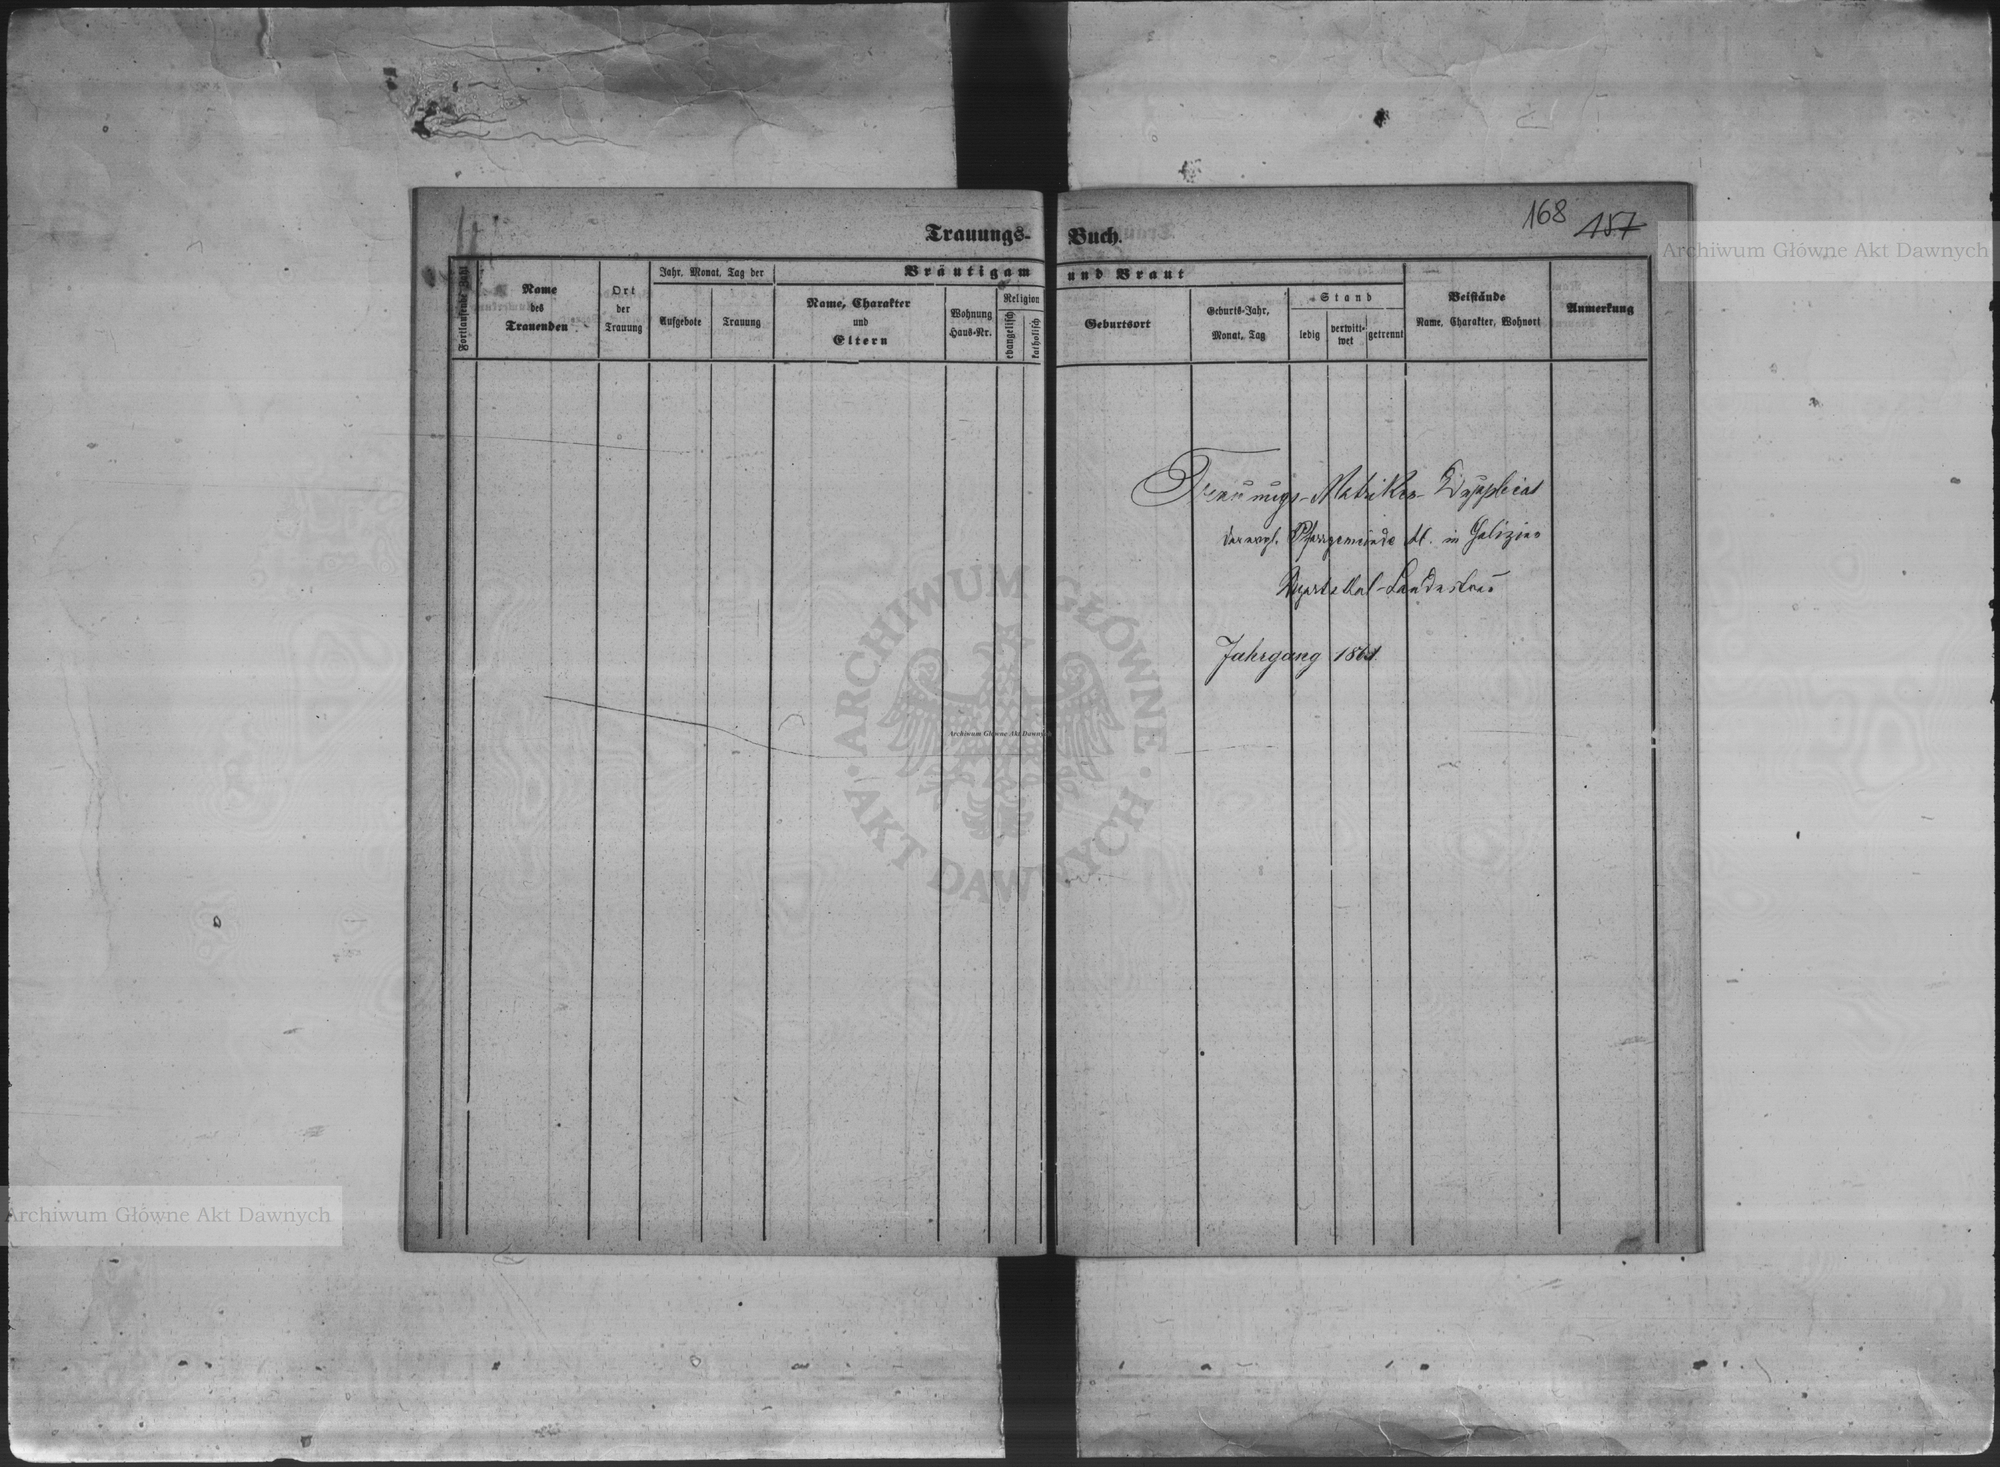 168 157
Trauungs- Buch.
Fortlaufende Zahl
Name
des
Trauenden
Ort
der
Trauung
Jahr, Monat, Tag der
Aufgebote
Trauung
Bräutigam und Braut
Name, Charakter
und
Eltern
Wohnung
Haus-Nr.
Religion
evangelisch
katholisch
Geburtsort
Geburts-Jahr,
Monat, Tag
Stand
ledig
verwitt-
wet
getrennt
Beistände
Name, Charakter, Wohnort
Anmerkung
Trauungs-Matriken-Duplicat
der evgl. Pfarrgemeinde A. in Galizien
Jahrgang 1861
Archiwum Główne Akt Dawnych
ARCHIWUM GŁÓWNE
AKT DAWNYCH
Archiwum Główne Akt Dawnych
Archiwum Główne Akt Dawnych